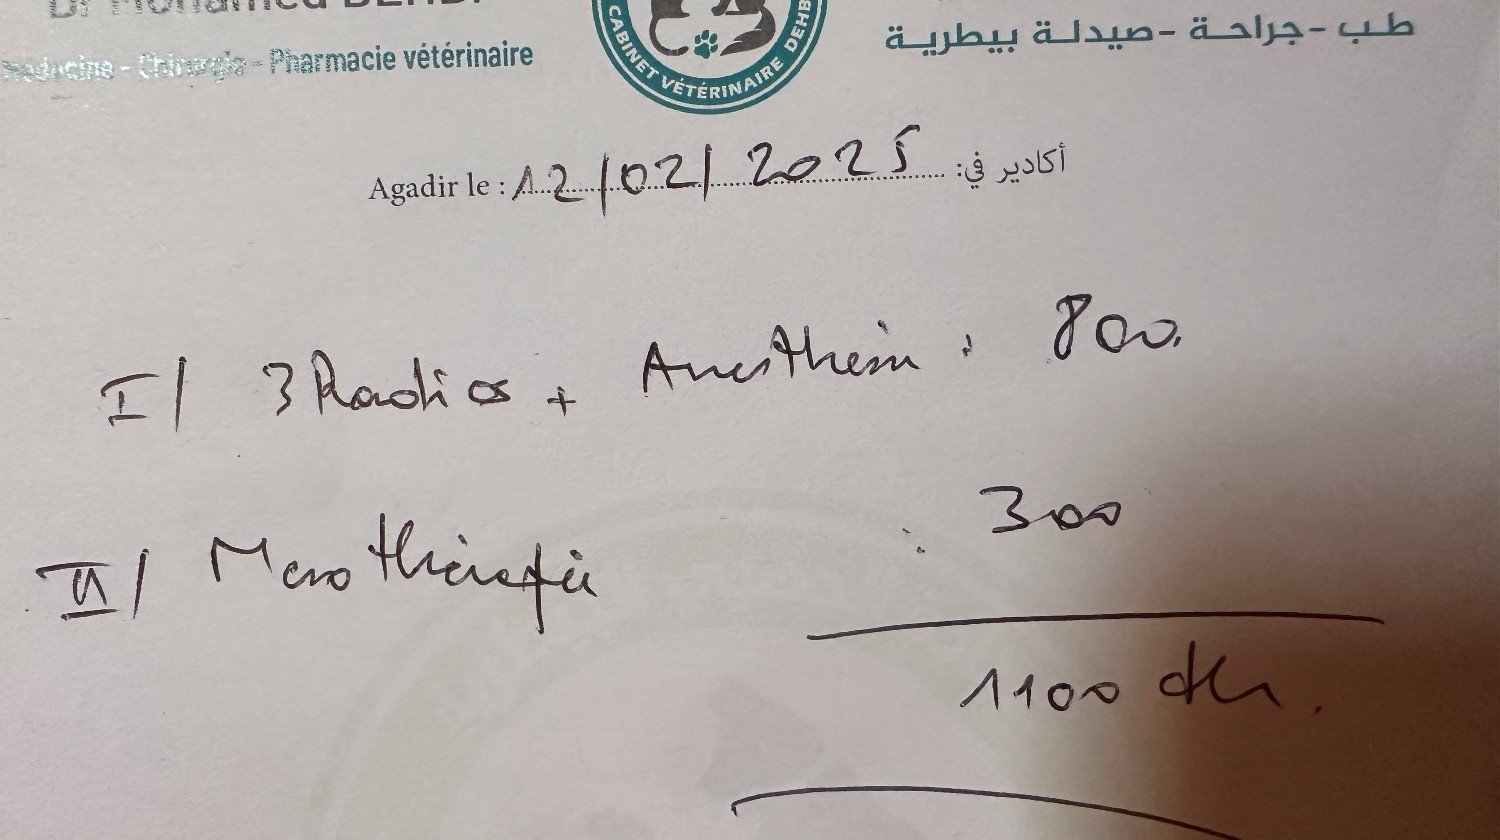 Dr Mohamed DEHB
Medecine - Chirurgie - Pharmacie vétérinaire
CABINET VÉTÉRINAIRE DEHB
طب - جراحة - صيدلة بيطرية
Agadir le : 12/02/2025 أكادير في:
I/ 3 Radios + Anesthesie : 800.
II/ Mesothérapie : 300
1100 dh.